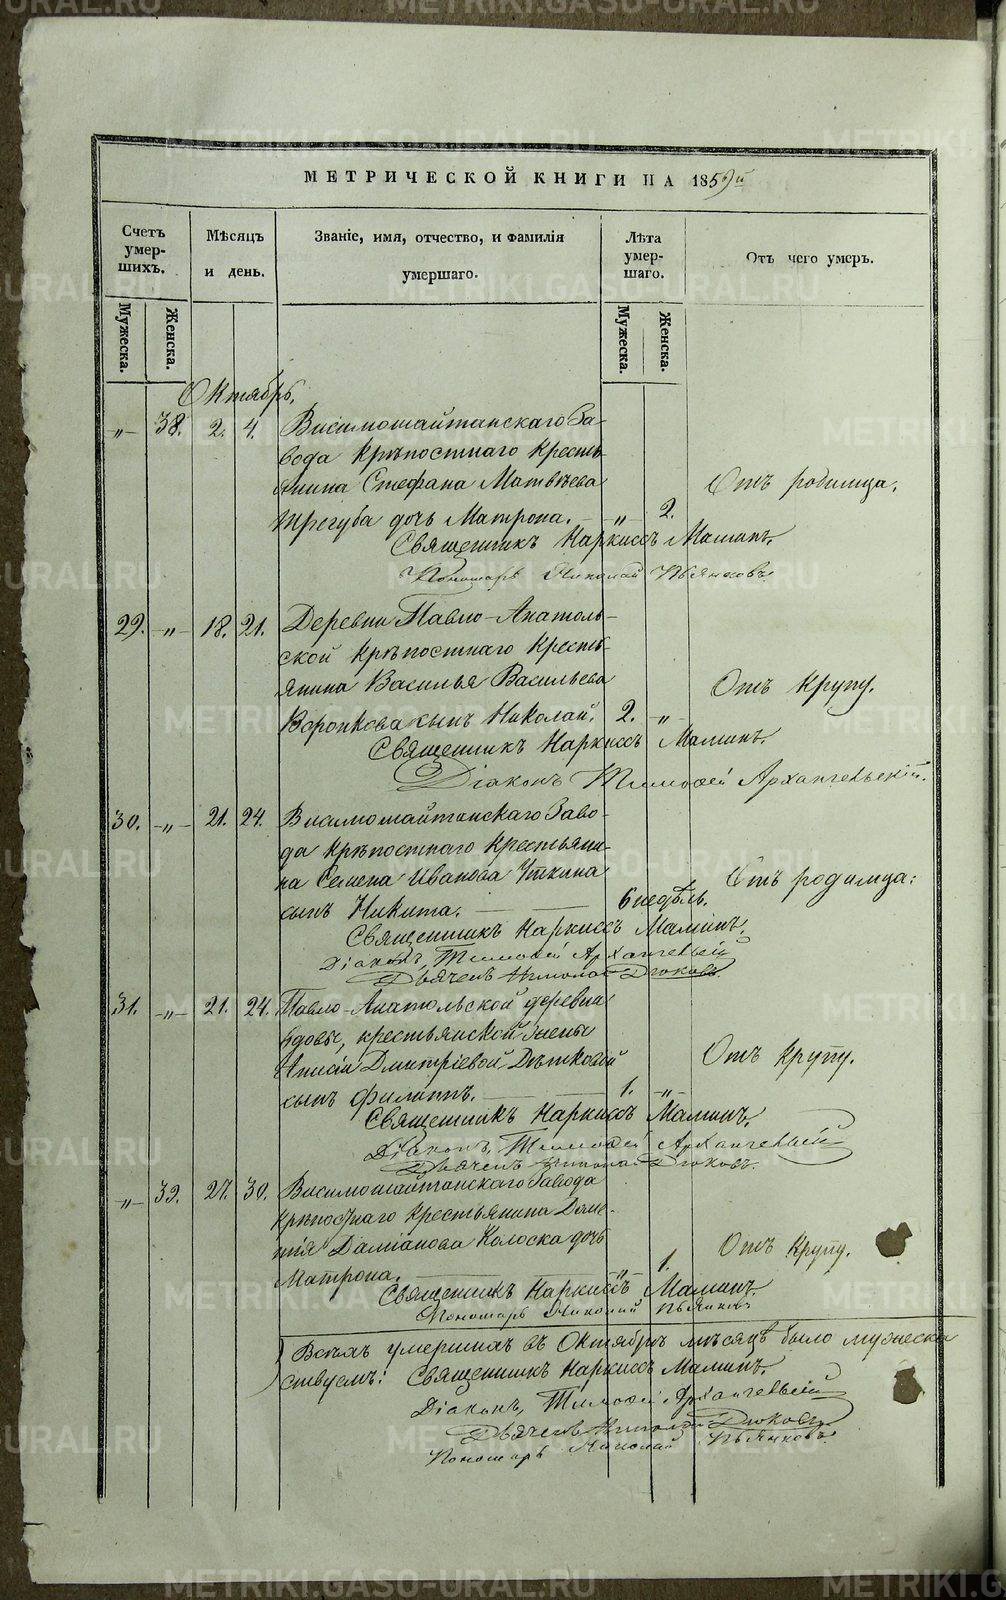 МЕТРИЧЕСКОЙ КНИГИ НА 1859й
Счетъ умер-шихъ.
Мѣсяцъ и день.
Званіе, имя, отчество, и фамилія умершаго.
Лѣта умер-шаго.
Отъ чего умеръ.
Мужеска.
Женска.
Мужеска.
Женска.
Октябрь.
„ 38. 2. 4. Висимошайтанскаго За-
вода крѣпостнаго кресть-
янина Стефана Матвѣева
Трегуба дочь Матрона. — „ 2.
Отъ родимца.
Священникъ Наркиссъ Маминъ.
Пономарь Николай Пьянковъ
29. „ 18. 21. Деревни Павло-Анатоль-
ской крѣпостнаго кресть-
янина Василья Васильева
Воронкова сынъ Николай. 2. „
Отъ крупу.
Священникъ Наркиссъ Маминъ.
Діаконъ Тимофей Архангельскій.
30. „ 21. 24. Висимошайтанскаго Заво-
да крѣпостнаго крестьяни-
на Семена Иванова Уткина
сынъ Никита. — 6 недѣль.
Отъ родимца:
Священникъ Наркиссъ Маминъ.
Діаконъ, Тимофей Архангельскій
Дьячекъ Николай Дюковъ
31. „ 21. 24. Павло-Анатольской деревни
вдовы, крестьянской жены
Анисіи Дмитріевой Дѣтковой
сынъ Филиппъ. — 1. „
Отъ крупу.
Священникъ Наркиссъ Маминъ.
Діаконъ, Тимофей Архангельскій
Дьячекъ Николай Дюковъ.
„ 39. 27. 30. Висимошайтанскаго Завода
крѣпостнаго крестьянина Доме-
тія Даміанова Колоска дочь
Матрона. — „ 1.
Отъ крупу.
Священникъ Наркиссъ Маминъ
Пономарь Николай Пьянковъ
Всѣхъ умершихъ въ Октябрѣ мѣсяцѣ было мужеска
ствуемъ: Священникъ Наркиссъ Маминъ.
Діаконъ, Тимофей Архангельскій
Дьячекъ Николай Дюковъ
Пономарь Николай Пьянковъ.
METRIKI.GASO-URAL.RU